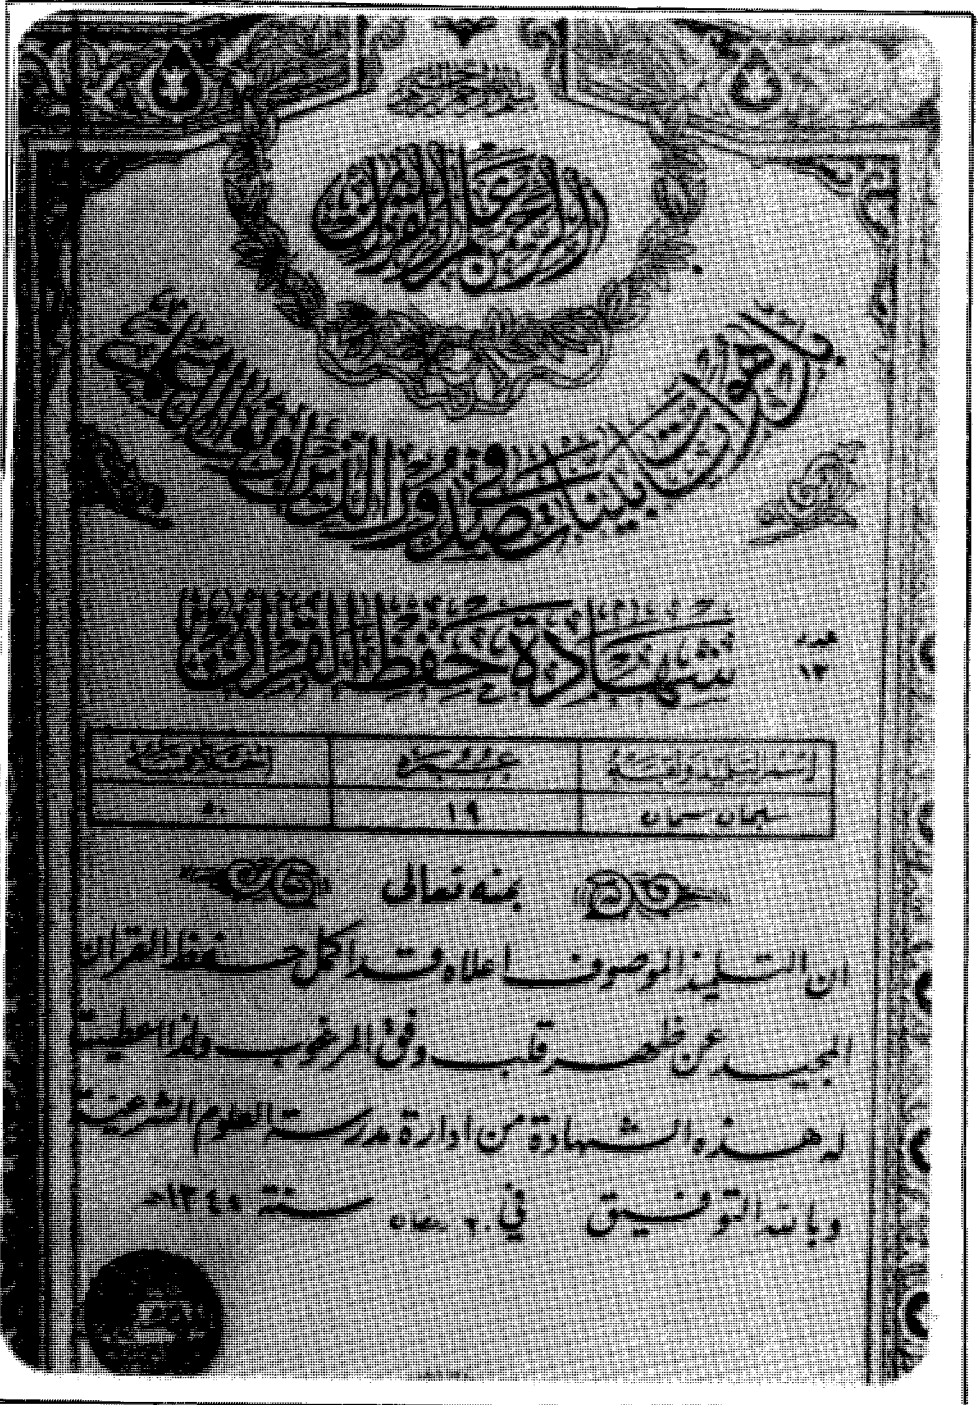 الرحمن علم القرآن
بل هو آيات بينات في صدور الذين أوتوا العلم
شهادة حفظ القرآن
عدد
١٣
اسم التلميذ ولقبه
عدد
سليمان سمان
١٩
٥٠
بمنه تعالى
ان التلميذ الموصوف اعلاه قد اكمل حفظ القرآن
المجيد عن ظهر قلب وفق المرغوب ولذا اعطيت
له هذه الشهادة من ادارة مدرسة العلوم الشرعية
وبالله التوفيق في رمضان سنة